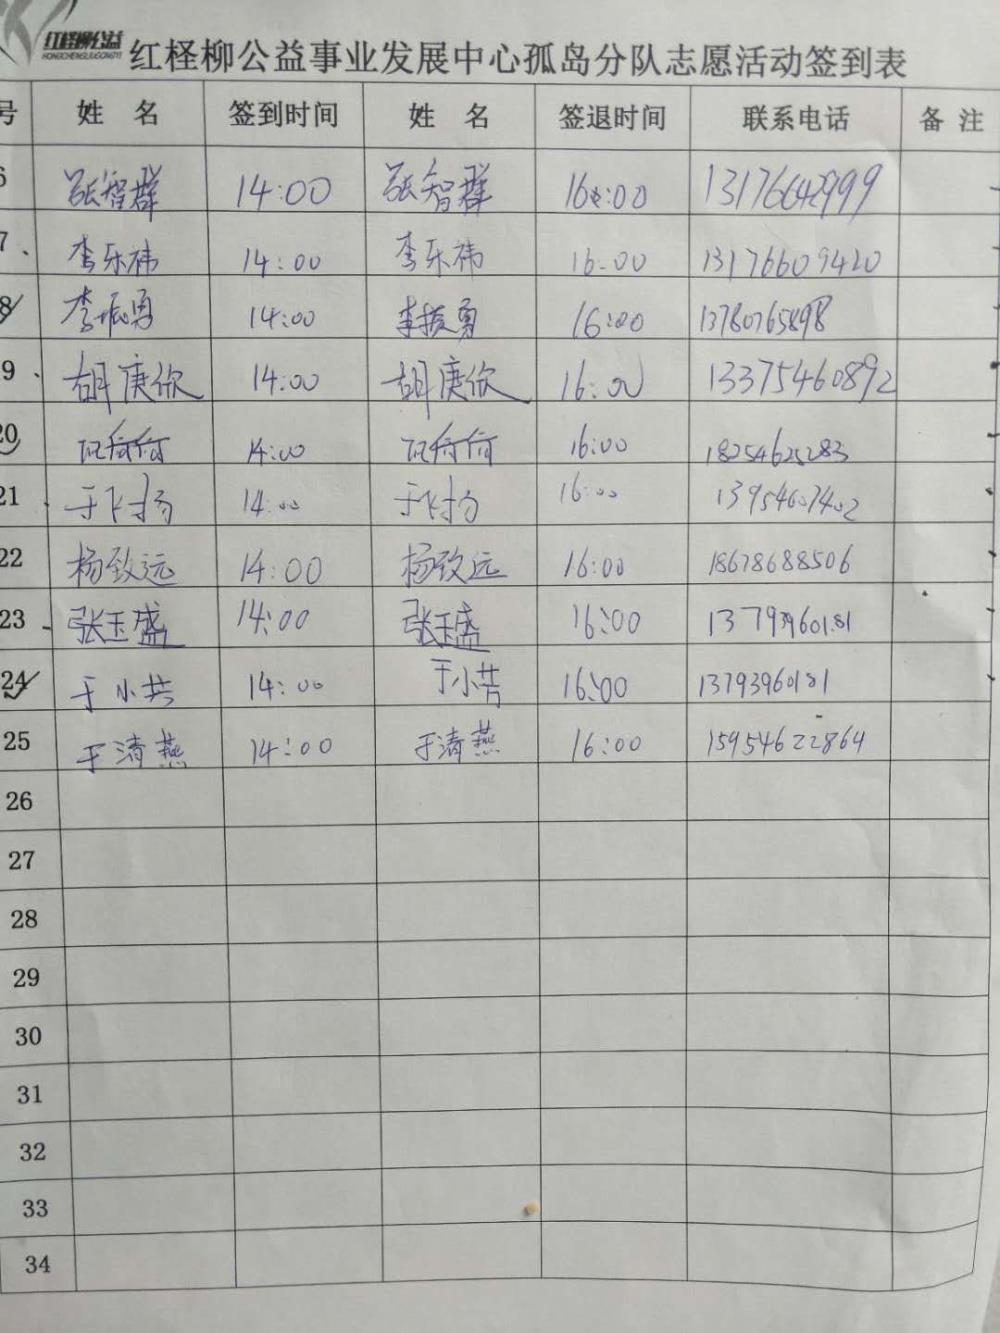 红柽柳公益
HONGCHENGLIUGONGYI
红柽柳公益事业发展中心孤岛分队志愿活动签到表
号 姓 名 签到时间 姓 名 签退时间 联系电话 备 注
6 张智群 14:00 张智群 16:00 13176642999
7 李乐祎 14:00 李乐祎 16:00 13176609420
8 李振勇 14:00 李振勇 16:00 13780765898
9 胡庚欣 14:00 胡庚欣 16:00 13375460892
20 14:00 16:00 18254625283
21 于飞扬 14:00 于飞扬 16:00 13954607402
22 杨致远 14:00 杨致远 16:00 18678688506
23 张玉盛 14:00 张玉盛 16:00 13793960181
24 于小芸 14:00 于小芸 16:00 13793960181
25 于清燕 14:00 于清燕 16:00 15954622864
26
27
28
29
30
31
32
33
34